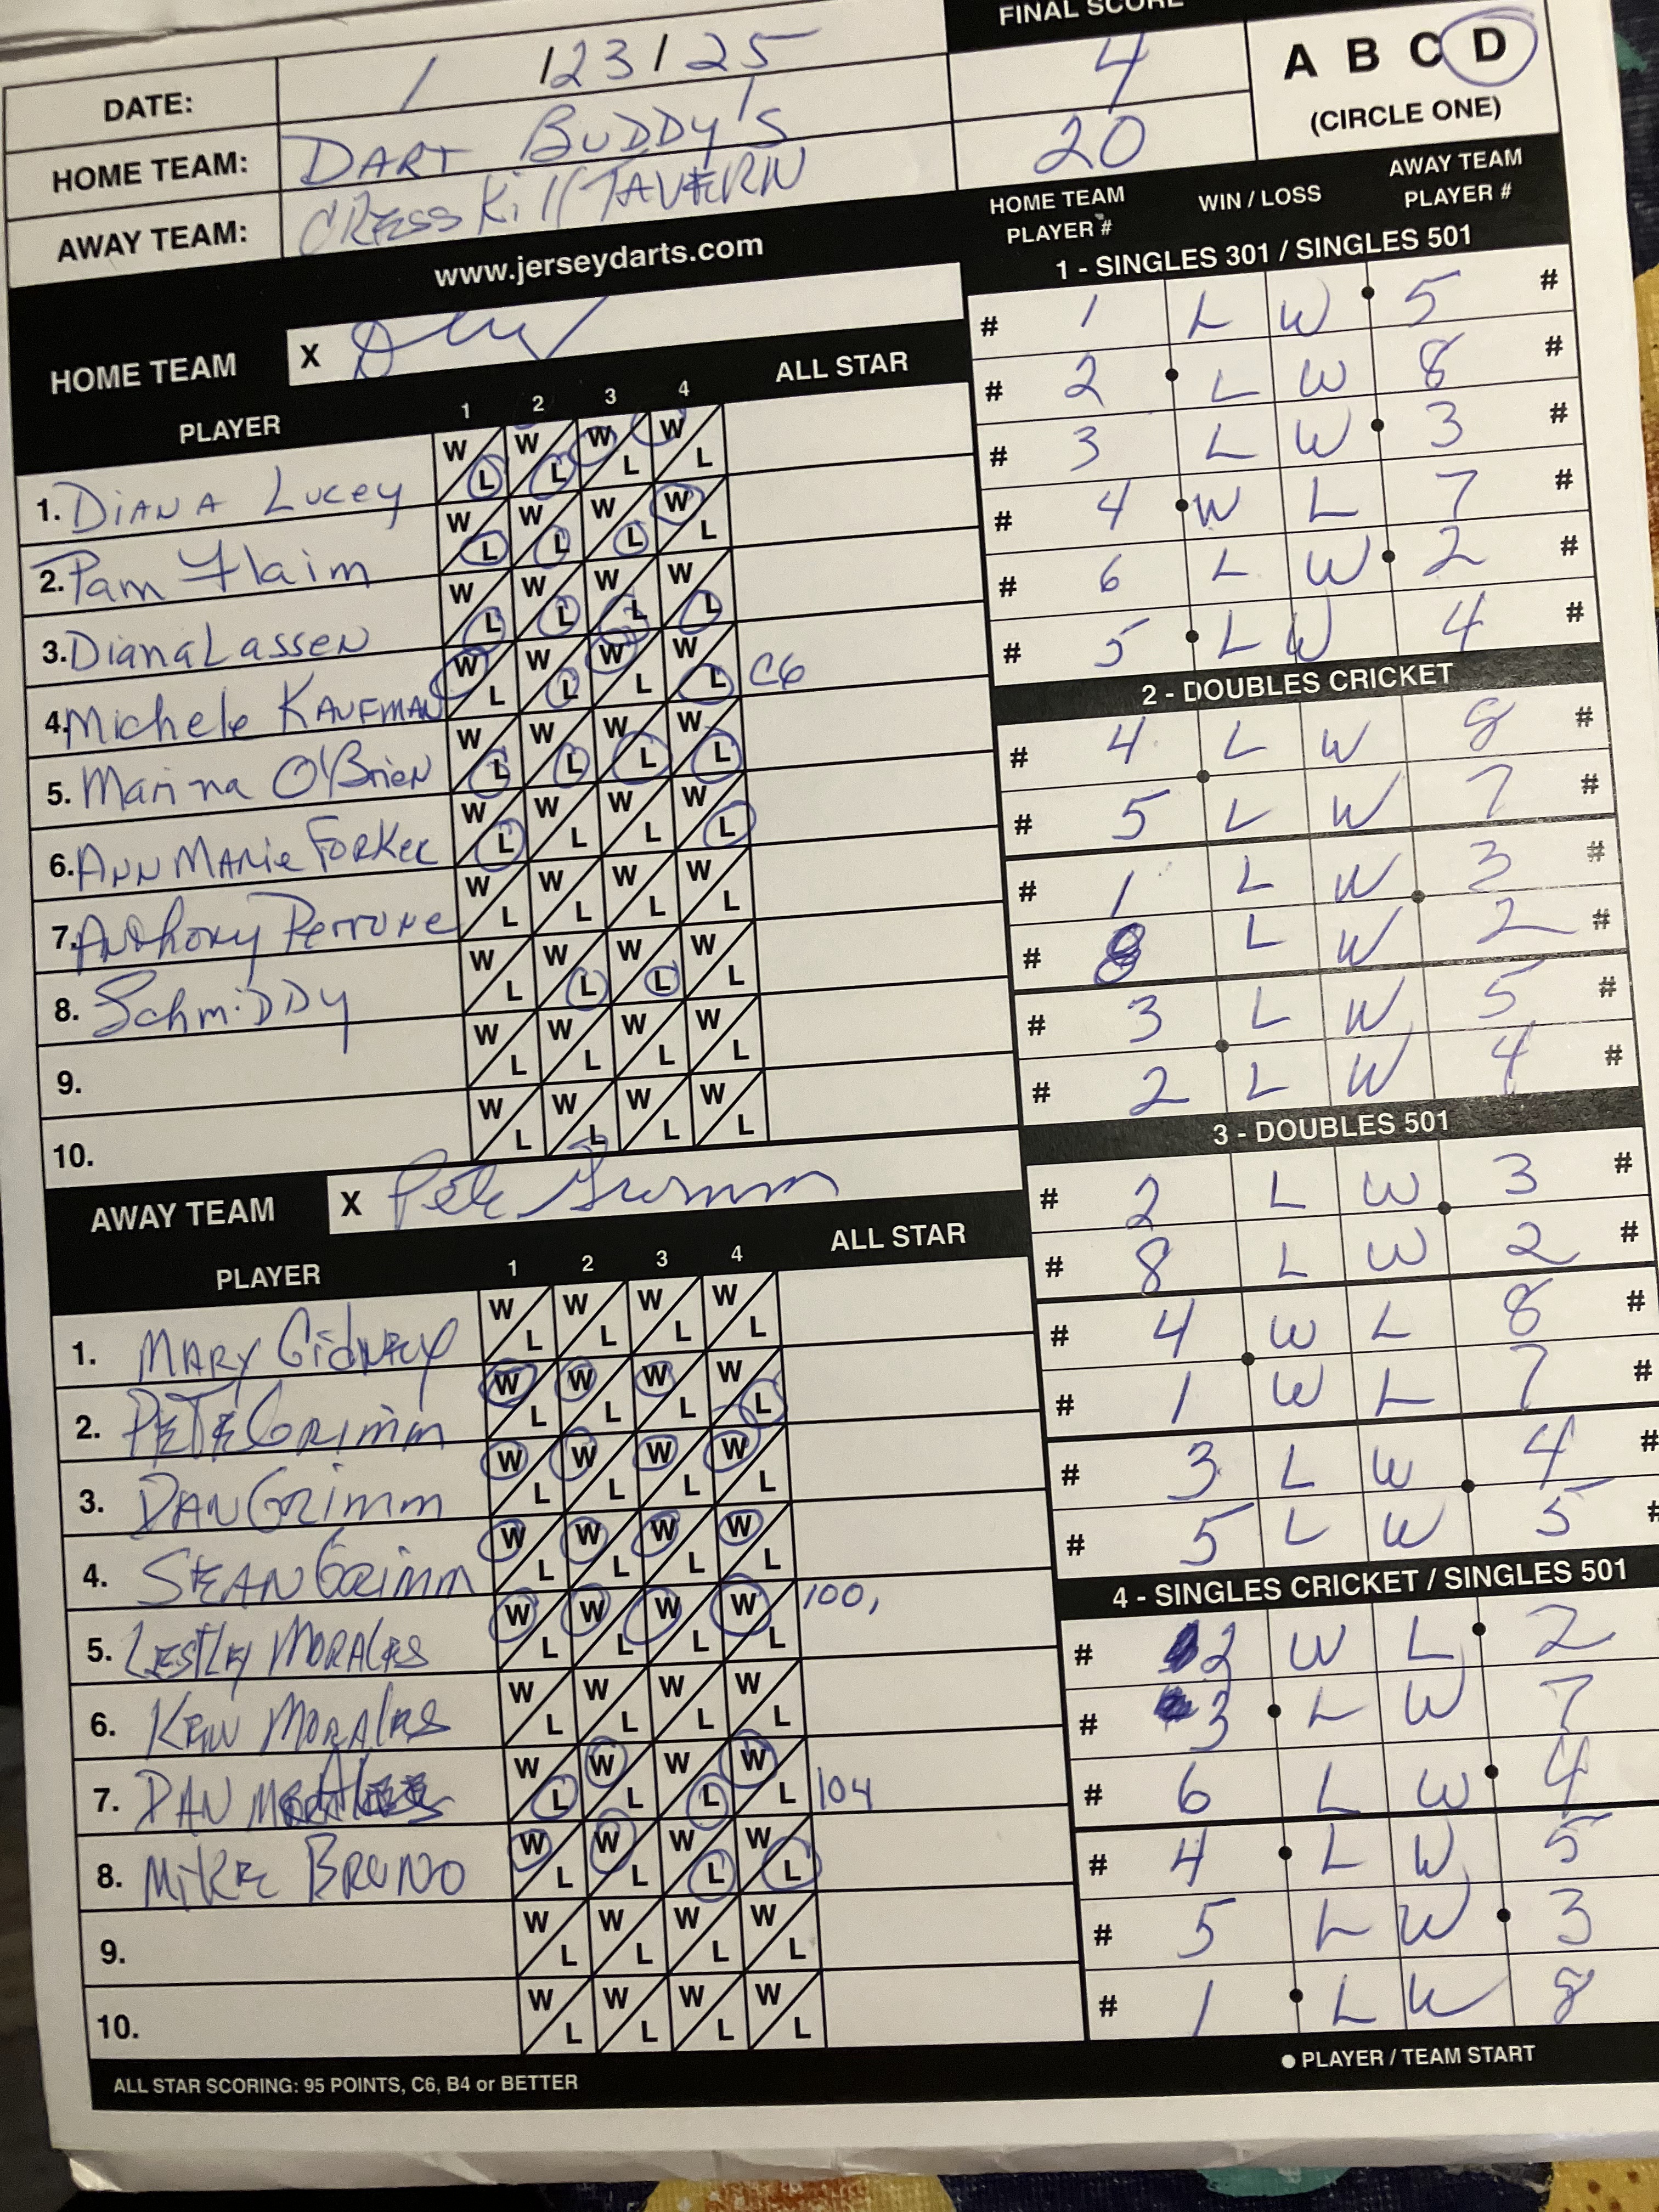 FINAL SCORE
DATE: 1/23/25 4
HOME TEAM: DART BUDDY'S 20
AWAY TEAM: CRESSKill TAVERN
A B C D
(CIRCLE ONE)
www.jerseydarts.com
HOME TEAM X
PLAYER 1 2 3 4 ALL STAR
1. DIANA Lucey W L W L W L W L
2. Pam Flaim W L W L W L W L
3. Diana Lassen W L W L W L W L
4. Michele KAUFMAN W L W L W L W L C6
5. Marina O'Brien W L W L W L W L
6. ANN MARie FORKEL W L W L W L W L
7. Anthony Perrone W L W L W L W L
8. SchmiDDy W L W L W L W L
9. W L W L W L W L
10. W L W L W L W L
AWAY TEAM X Pete Grimm
PLAYER 1 2 3 4 ALL STAR
1. MARY GidNEY W L W L W L W L
2. PETE GRimm W L W L W L W L
3. DAN GRimm W L W L W L W L
4. SEAN GRimm W L W L W L W L
5. LESTLEY MORALES W L W L W L W L 100,
6. KEW MORALES W L W L W L W L
7. DAN W L W L W L W L 104
8. MiKE BRUNO W L W L W L W L
9. W L W L W L W L
10. W L W L W L W L
ALL STAR SCORING: 95 POINTS, C6, B4 or BETTER
HOME TEAM PLAYER # WIN / LOSS AWAY TEAM PLAYER #
1 - SINGLES 301 / SINGLES 501
# 1 L W 5 #
# 2 L W 8 #
# 3 L W 3 #
# 4 W L 7 #
# 6 L W 2 #
# 5 L W 4 #
2 - DOUBLES CRICKET
# 4 L W 8 #
# 5 L W 7 #
# 1 L W 3 #
# 8 L W 2 #
# 3 L W 5 #
# 2 L W 4 #
3 - DOUBLES 501
# 2 L W 3 #
# 8 L W 2 #
# 4 W L 8 #
# 1 W L 7 #
# 3 L W 4 #
# 5 L W 5 #
4 - SINGLES CRICKET / SINGLES 501
# 2 W L 2
# 3 L W 7
# 6 L W 4
# 4 L W 5
# 5 L W 3
# 1 L W 8
PLAYER / TEAM START